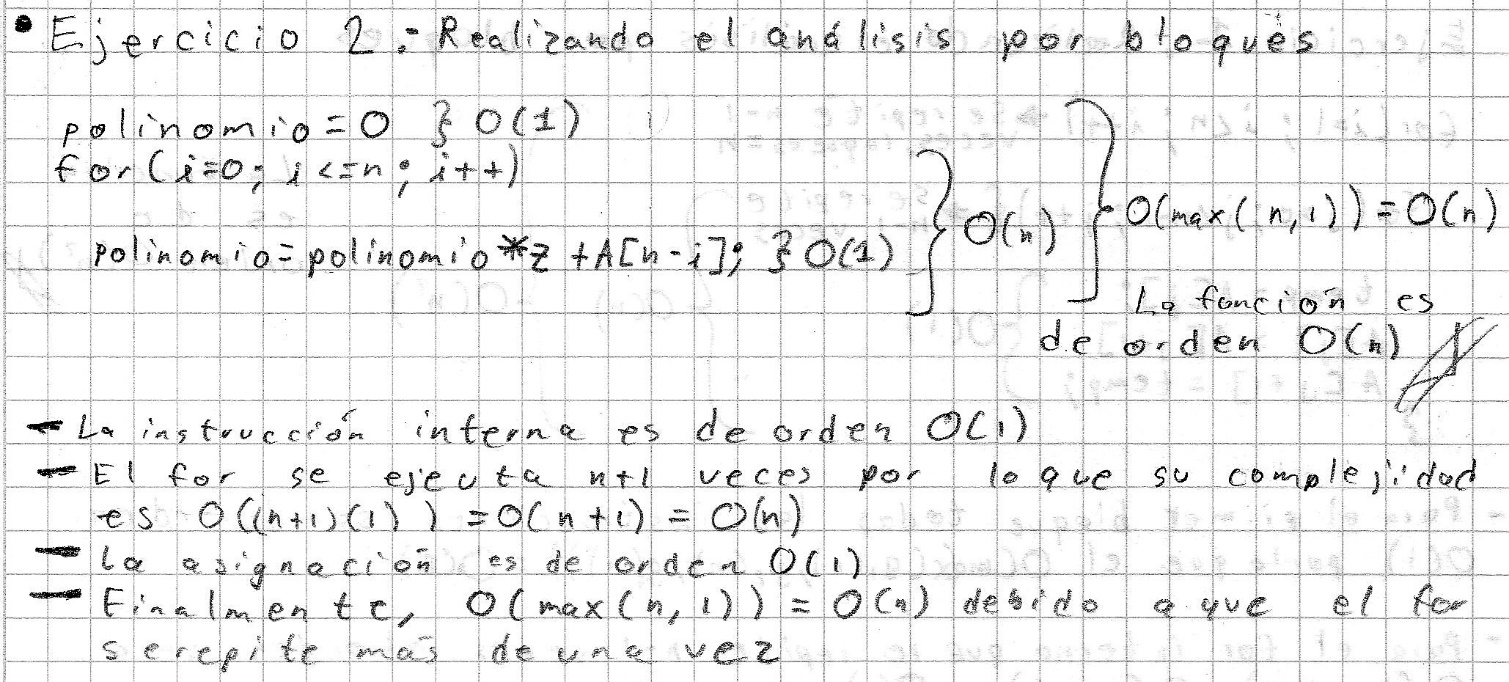 • Ejercicio 2.- Realizando el análisis por bloques
polinomio=0 } O(1)
for(i=0; i<=n; i++)
polinomio=polinomio*z+A[n-i]; } O(1) } O(n) } O(max(n,1))=O(n)
La función es
de orden O(n)
- La instrucción interna es de orden O(1)
- El for se ejecuta n+1 veces por lo que su complejidad
es O((n+1)(1)) = O(n+1) = O(n)
- La asignación es de orden O(1)
- Finalmente, O(max(n,1)) = O(n) debido a que el for
se repite más de una vez